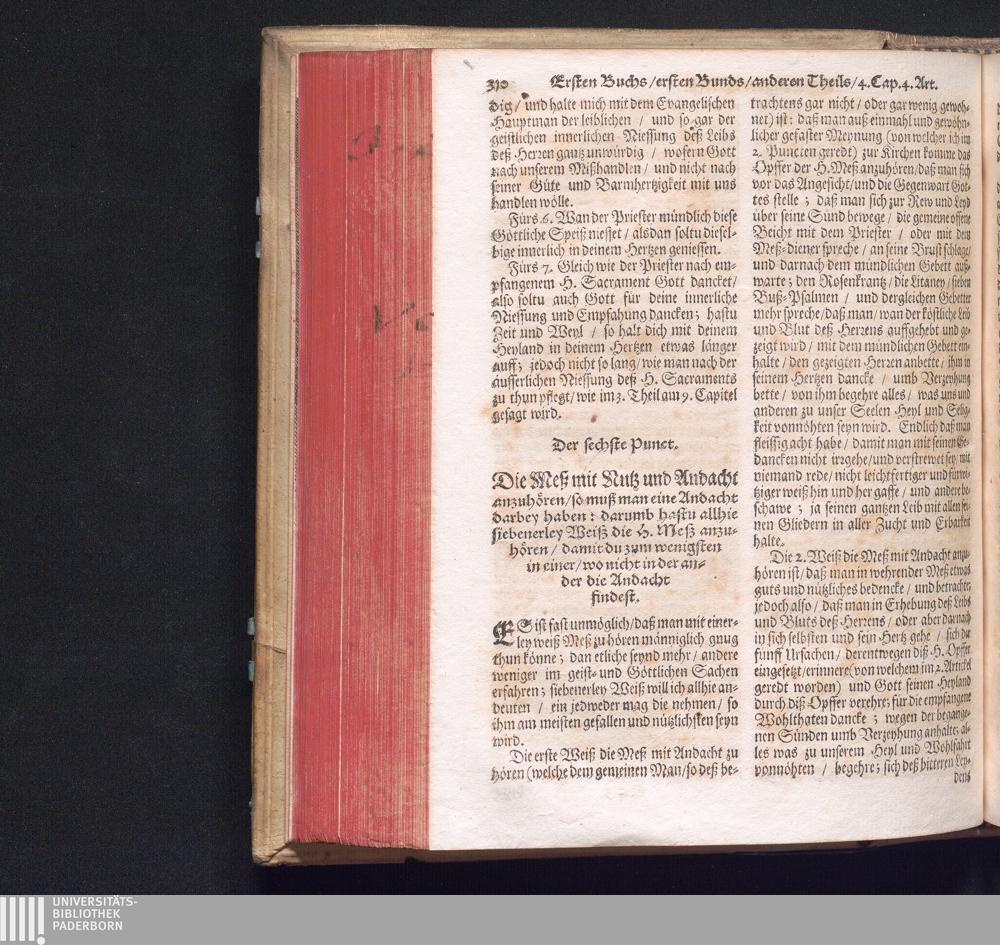 310 Ersten Buchs/ersten Bunds/anderen Theils/4.Cap.4.Art.
dig/ und halte mich mit dem Evangelischen
Hauptman der leiblichen / und so gar der
geistlichen innerlichen Niessung deß Leibs
deß Herren gantz unwürdig / wofern Gott
nach unserem Mißhandlen / und nicht nach
seiner Güte und Barmhertzigkeit mit uns
handlen wölle.
Fürs 6. Wan der Priester mündlich diese
Göttliche Speiß niesset / alsdan soltu diesel-
bige innerlich in deinem Hertzen geniessen.
Fürs 7. Gleich wie der Priester nach em-
pfangenem H. Sacrament Gott dancket/
also soltu auch Gott für deine innerliche
Niessung und Empfahung dancken; hastu
Zeit und Weyl / so halt dich mit deinem
Heyland in deinem Hertzen etwas länger
auff; jedoch nicht so lang/ wie man nach der
äusserlichen Niessung deß H. Sacraments
zu thun pflegt/ wie im 3. Theil am 9. Capitel
gesagt wird.
Der sechste Punct.
Die Meß mit Nutz und Andacht
anzuhören/so muß man eine Andacht
darbey haben: darumb hastu allhie
siebenerley Weiß die H. Meß anzu-
hören / damit du zum wenigsten
in einer/wo nicht in der an-
der die Andacht
findest.
ES ist fast unmöglich/daß man mit einer-
ley weiß Meß zu hören männiglich gnug
thun könne; dan etliche seynd mehr / andere
weniger im geist- und Göttlichen Sachen
erfahren; siebenerley Weiß will ich allhie an-
deuten / ein jedweder mag die nehmen / so
ihm am meisten gefallen und nützlichsten seyn
wird.
Die erste Weiß die Meß mit Andacht zu
hören (welche dem gemeinen Man/so deß be-
trachtens gar nicht / oder gar wenig gewoh-
net) ist: daß man auß einmahl und gewöhn-
licher gefaster Meynung (von welcher ich im
2. Puncten geredt) zur Kirchen komme das
Opffer der H. Meß anzuhören/daß man sich
vor das Angesicht/und die Gegenwart Got-
tes stelle; daß man sich zur Rew und Leyd
über seine Sünd bewege / die gemeine offene
Beicht mit dem Priester / oder mit dem
Meß-diener spreche / an seine Brust schlage/
und darnach dem mündlichen Gebett auß-
warte; den Rosenkrantz/ die Litaney/ sieben
Buß-Psalmen / und dergleichen Gebetter
mehr spreche/daß man/ wan der köstliche Leib
und Blut deß Herrens auffgehebt und ge-
zeigt wird / mit dem mündlichen Gebett ein-
halte / den gezeigten Herren anbette / ihm in
seinem Hertzen dancke / umb Verzeyhung
bette / von ihm begehre alles / was uns und
anderen zu unser Seelen Heyl und Selig-
keit vonnöhten seyn wird. Endlich daß man
fleissig acht habe / damit man mit seinen Ge-
dancken nicht irrgehe/und verstrewet sey/ mit
niemand rede/ nicht leichtfertiger und fürwi-
tziger weiß hin und her gaffe / und andere be-
schawe; ja seinen gantzen Leib mit allen sei-
nen Gliedern in aller Zucht und Erbarkeit
halte.
Die 2. Weiß die Meß mit Andacht anzu-
hören ist / daß man in wehrender Meß etwas
guts und nützliches bedencke / und betrachte;
jedoch also / daß man in Erhebung deß Leibs
und Bluts deß Herrens / oder aber darnach
in sich selbsten und sein Hertz gehe / sich der
fünff Ursachen / derentwegen diß H. Opffer
eingesetzt/erinnere(von welchem im 2. Artickel
geredt worden) und Gott seinen Heyland
durch diß Opffer verehre; für die empfangene
Wohlthaten dancke; wegen der begange-
nen Sünden umb Verzeyhung anhalte; al-
les was zu unserem Heyl und Wohlfahrt
vonnöhten / begehre; sich deß bitteren Ley-
dens
UNIVERSITÄTS-
BIBLIOTHEK
PADERBORN